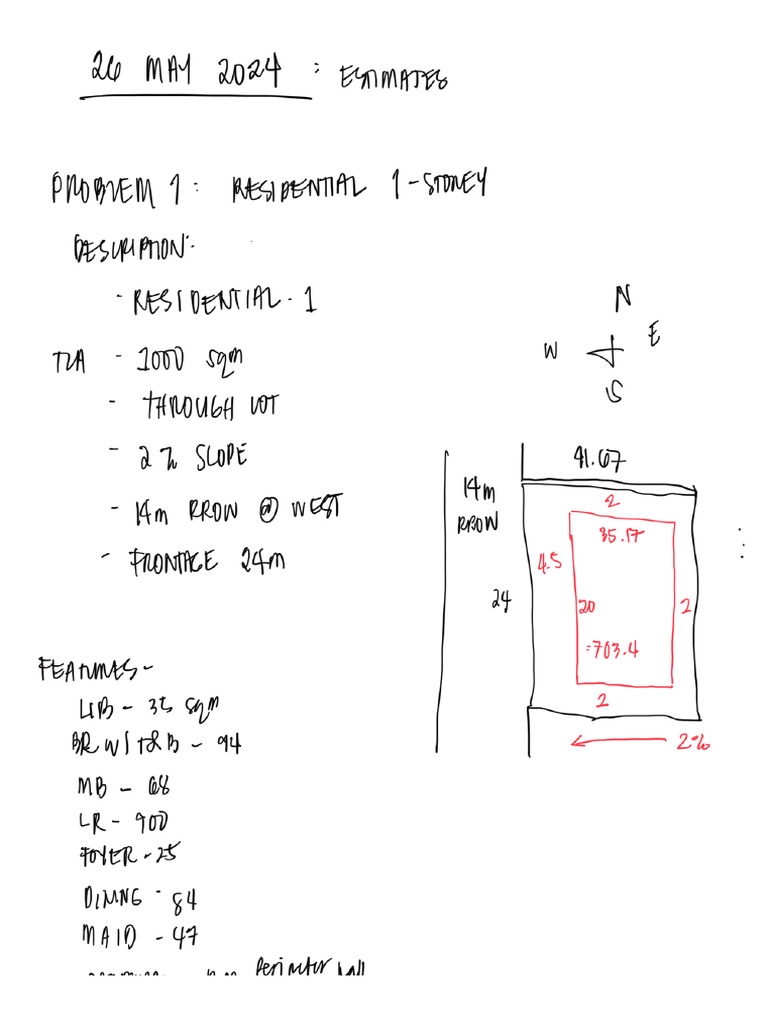 26 MAY 2024 : ESTIMATES
PROBLEM 1: RESIDENTIAL 1-STOREY
DESCRIPTION:
- RESIDENTIAL - 1
TLA - 1000 sqm
- THROUGH LOT
- 2% SLOPE
- 14m RROW @ WEST
- FRONTAGE 24m
N
W E
S
41.67
14m
RROW
2
35.17
4.5
24
20
2
=703.4
2
2%
FEATURES -
LIB - 35 sqm
BR W/ T&B - 94
MB - 68
LR - 900
FOYER - 25
DINING - 84
MAID - 47
Perimeter